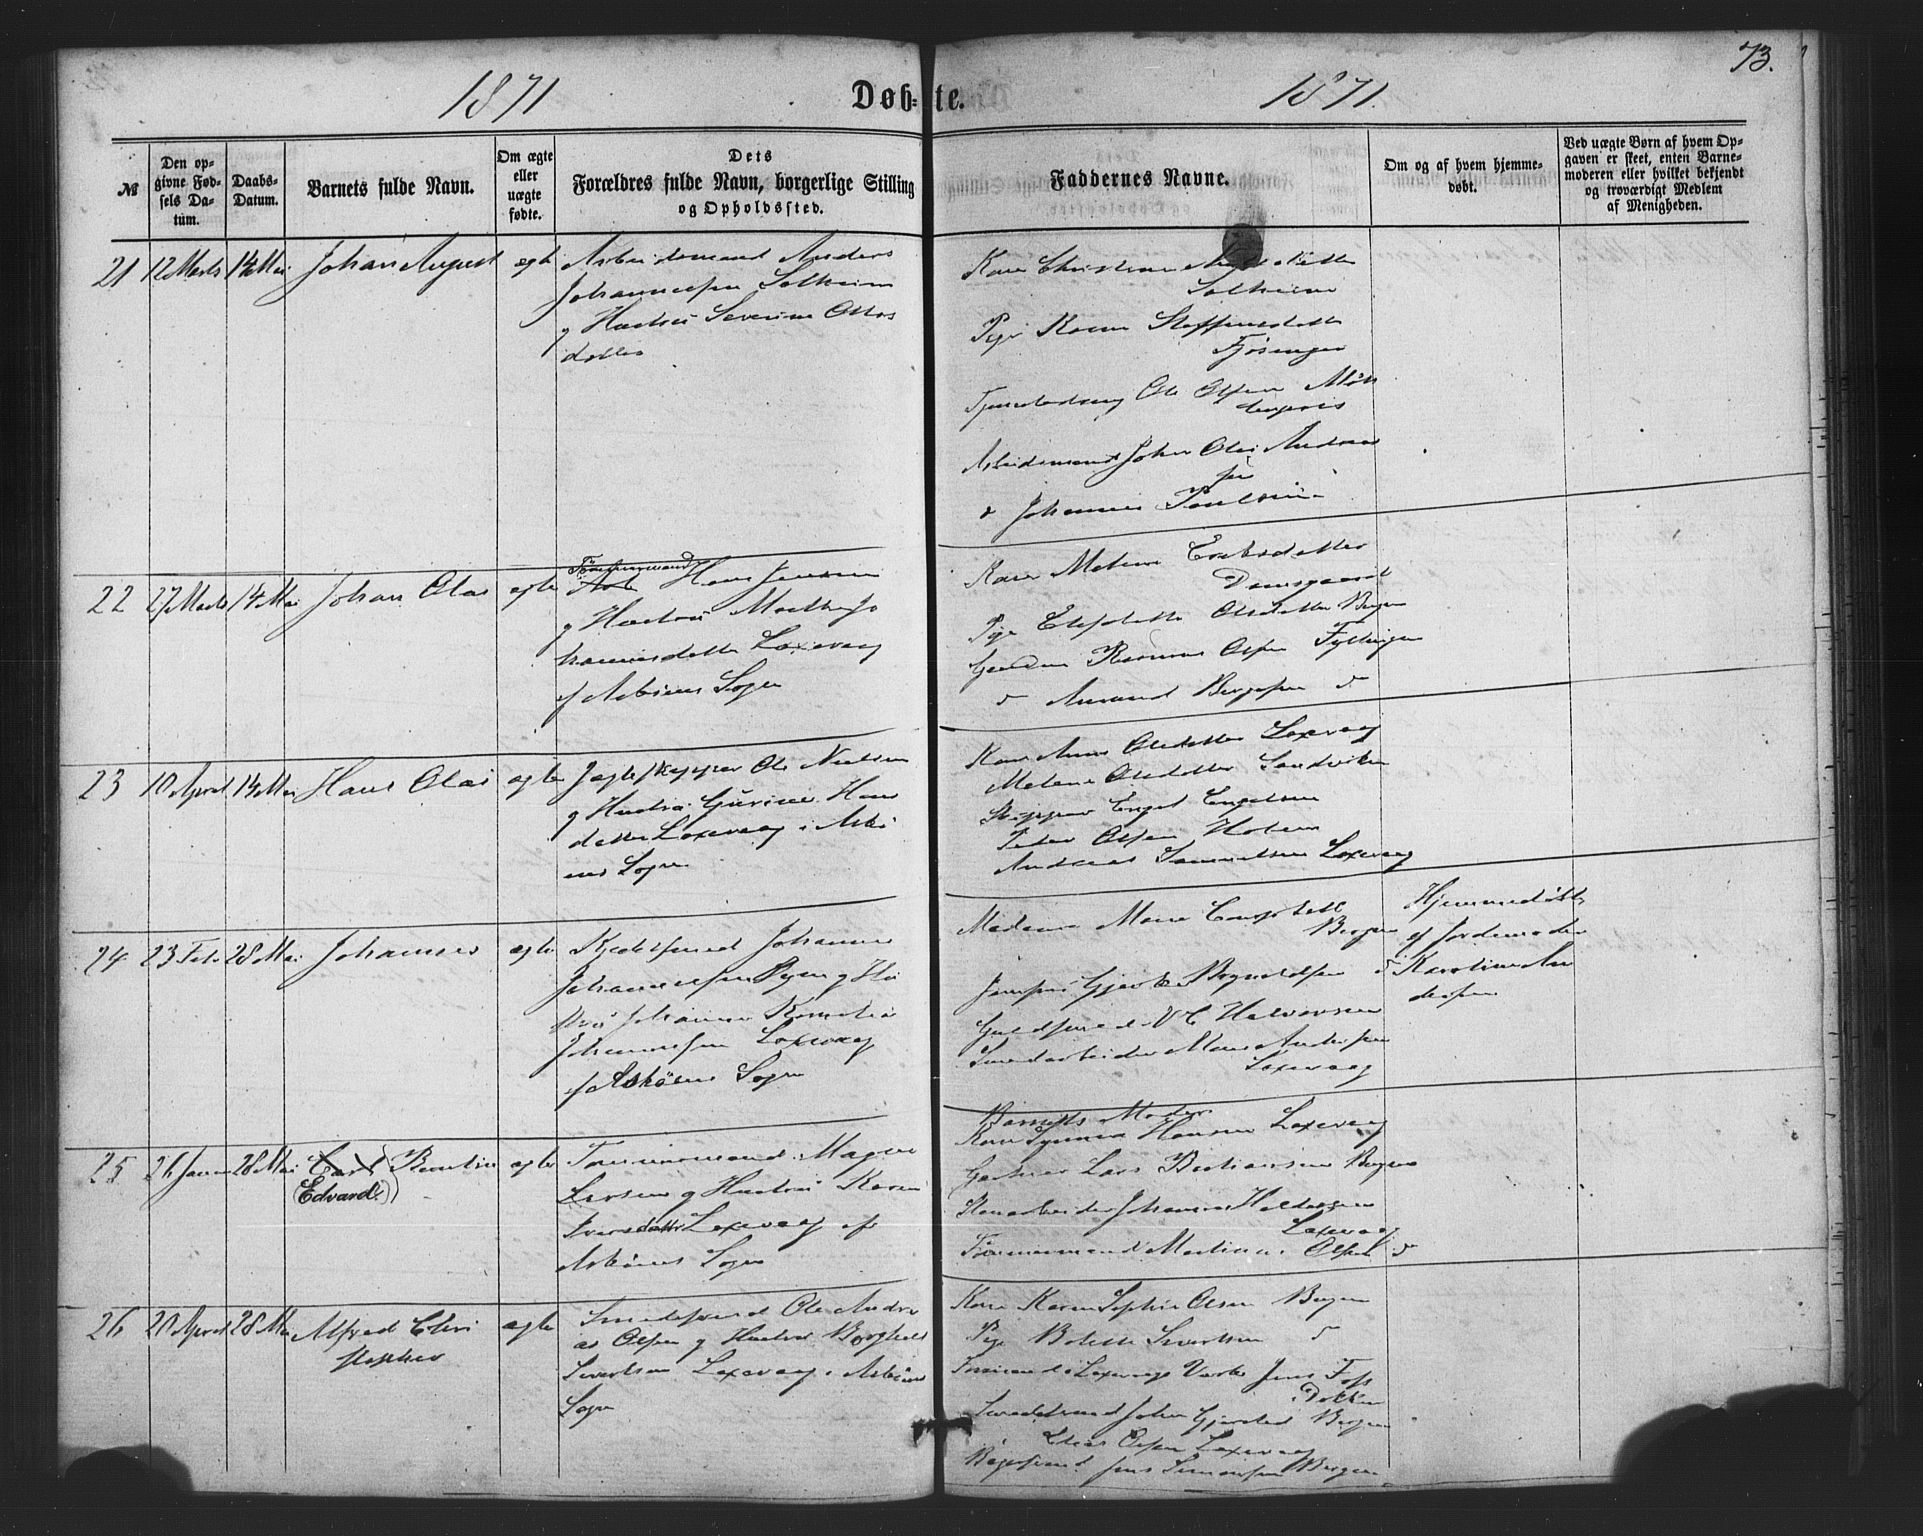 73.
1871
Døb-te.
1871.
№
Den opgivne Fødsels Datum.
Daabs-Datum.
Barnets fulde Navn.
Om ægte eller uægte fødte.
Dets
Forældres fulde Navn, borgerlige Stilling
og Opholdssted.
Faddernes Navne.
Om og af hvem hjemmedøbt.
Ved uægte Børn af hvem Opgaven er skeet, enten Barnemoderen eller hvilket bekjendt og troværdigt Medlem af Menigheden.
21 12 Marts 14 Mai Johan August ægte Arbeidsmand Anders
Johannessen Solheim
g Hustru Severine Olas
datter
Kone Christine
Solheim
Pige Karen Steffensdatter
Fjøsanger
Tjenestedreng Ole Olsen
Arbeidsmand Johan Olai Andreas
sen
Johannes Poulsen
22 27 Marts 14 Mai Johan Olai ægte Tømmermand Hans Jensen
g Hustru Marthe Jo
hannesdatter Laxevaag
af Askøens Sogn
Kone Malene
Damsgaard
Pige Olsdatter Bergen
Gaardm Rasmus Olsen Fyllingen
do Amund Børgesen do
23 10 April 14 Mai Hans Olai ægte Jagteskipper Ole Nielsen
g Hustru Gurine Hans
datter Laxevaag i Askø
ens Sogn
Kone Anna Olsdatter Laxevaag
Malene Olsdatter Sandviken
Skipper Engel Engelsen
Peter Olsen Holen
Andreas Samuelsen Laxevaag
24 23 Feb 28 Mai Johannes ægte Kjedelsmed Johannes
Johannessen g Hu
stru Johanne Kornelia
Johannessen Laxevaag
af Askøens Sogn
Madame Marie
Bergen
do
Guldsmed Halvorsen
Smedarbeider Mons Andersen
Laxevaag
Hjemmedøbt
af Jordemoder
Karoline An
dersen
25 26 Januar 28 Mai Carl Berntin ægte Tømmermand Magne
(Edvard)
Larsen g Hustru Karen
Iversdatter Laxevaag af
Askøens Sogn
Barnets Moder
Kone Synneva Hansen Laxevaag
Gartner Lars Bastiansen Bergen
Stenarbeider Johannes Haldorsen
Laxevaag
Tømmermand Martinus Olsen do
26 20 April 28 Mai Alfred Chri
stopher
ægte Smedsvend Ole Andre
as Olsen g Hustru Borghild
Sivertsen Laxevaag i Askøens
Sogn
Kone Karen Sophie Olsen Bergen
Pige Bolette Sivertsen do
Formand i Laxevaags Værk Jens Foss
Dokken
Smedsvend Johan Gjersted Bergen
Elias Olsen Laxevaag
Bøgersvend Jens Simonsen Bergen